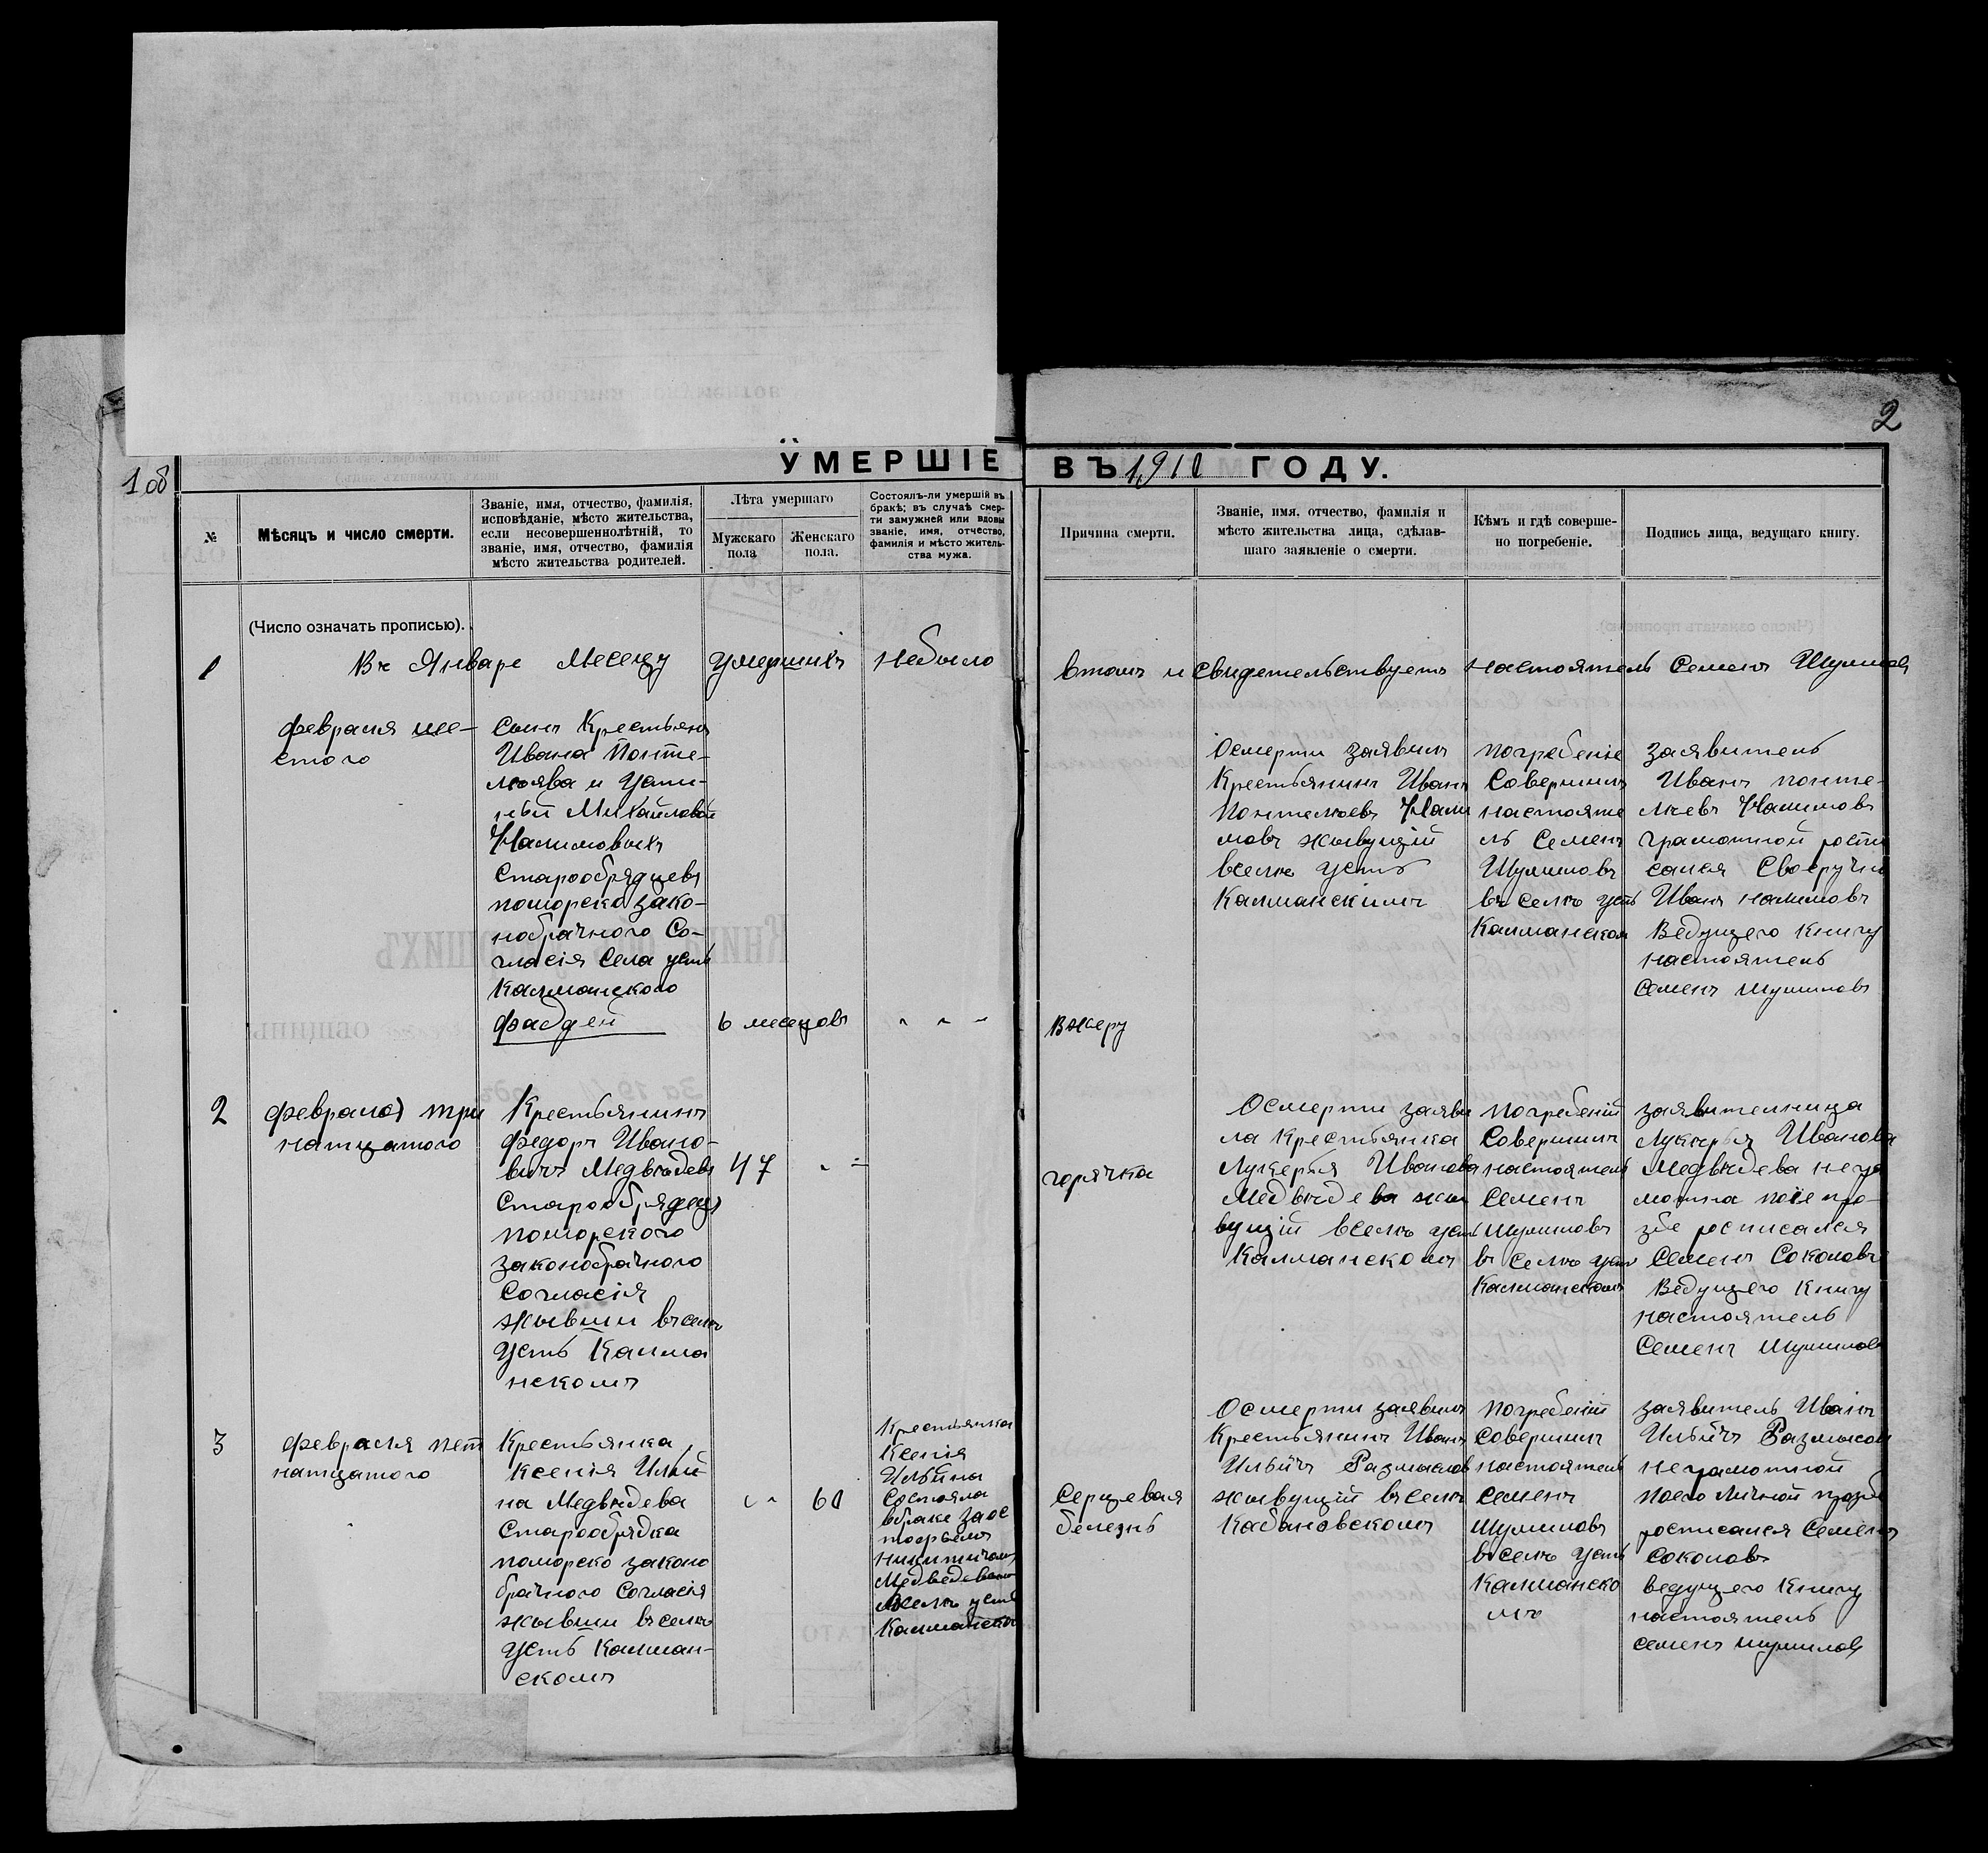 2
1 об
УМЕРШІЕ ВЪ 1910 ГОДУ.
№
Мѣсяцъ и число смерти.
Званіе, имя, отчество, фамилія,
исповѣданіе, мѣсто жительства,
если несовершеннолѣтній, то
званіе, имя, отчество, фамилія
мѣсто жительства родителей.
Лѣта умершаго
Мужскаго
пола
Женскаго
пола.
Состоялъ-ли умершій въ
бракѣ; въ случаѣ смер-
ти замужней или вдовы
званіе, имя, отчество,
фамилія и мѣсто житель-
ства мужа.
Причина смерти.
Званіе, имя, отчество, фамилія и
мѣсто жительства лица, сдѣлав-
шаго заявленіе о смерти.
Кѣмъ и гдѣ соверше-
но погребеніе.
Подпись лица, ведущаго книгу.
(Число означать прописью).
1
Въ Январе Месецу умершихъ небыло втомъ и свидетельствуетъ настоятель Семенъ Шумиловъ
февраля ше-
стого
Сынъ Крестьянъ
Ивана Понте-
люява и Усти-
ньи Михайловой
Налимовыхъ
Старообрядцевъ
поморско зако-
нобрачного Со-
гласія Села усть
Калманского
Фаддей
6 месецовъ
Вжеру
Осмерти заявилъ
Крестьянинъ Иванъ
Понтелюевъ Нали
мовъ живущій
вселѣ Усть
Калманскимъ
Погребеніе
Совершилъ
настояте
ль Семенъ
Шумиловъ
въ Селѣ Усть
Калманском
Заявитель
Иванъ понте-
люевъ Налимовъ
грамотной роспи
сался Своеручно
Иванъ Налимовъ
Ведущего Книгу
настоятель
Семенъ Шумиловъ
2
февраля три
натцатого
Крестьянинъ
Федоръ Ивано-
вичъ Медвѣдевъ
Старообрядецъ
поморского
законобрачного
Согласія
жывши въселѣ
Усть Калма
нскомъ
47
горячка
Осмерти заяви
ла Крестьянка
Лукерья Иванова
Медвѣдева жи
вущій вселѣ усть
Калманскомъ
Погребеній
Совершилъ
настоятель
Семенъ
Шумиловъ
въ Селѣ Усть
Калманскомъ
заявительница
Лукерья Иванова
Медвѣдева негра
мотна поее про-
збе росписался
Семенъ Соколовъ
Ведущего Книгу
настоятель
Семенъ Шумиловъ
3
Февраля пет
натцатого
Крестьянка
Ксенія Ильи-
на Медвѣдева
Старообрядка
поморско законо
брачного Согласія
жывши въселѣ
Усть Калман-
скомъ
60
Крестьянка
Ксенія
Ильина
Состояла
вбраке
Медведевым
вселѣ усть
Калманском
Серцевая
белезнь
Осмерти заявилъ
Крестьянинъ Иванъ
Ильичъ Размысловъ
жывущій въселѣ
Кабановскомъ
Погребеній
Совершилъ
настоятель
Семенъ
Шумиловъ
въселѣ Усть
Калманско
мъ
заявитель Иванъ
Ильичъ Размыслов
неграмотной
поего личной прозбе
росписался Семенъ
Соколовъ
ведущего Книгу
настоятель
Семенъ Шумиловъ